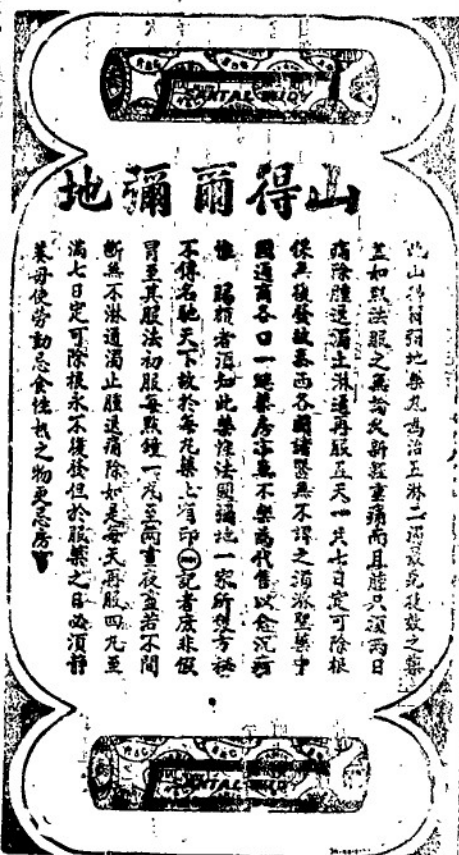 SANTAL MIDY
山得爾彌地
此山得爾彌地藥丸為治五淋二濁最捷效之藥
蓋如照法服之無論久新重痛而且腫只須兩日
痛除腫退濁止淋通再服五天一共七日定可除根
保無後發故泰西各國諸醫無不謂之淋聖藥中
國通商各口一經藥房亦無不樂為代售以愈沉疴
惟 賜顧者須知此藥係法國彌地一家所製方秘
不傳名馳天下故於每丸藥上須印記者庶非假
冒至其服法初服每點鐘一丸至兩晝夜若不間
斷無不淋通濁止腫退痛除如是每天再服四丸至
滿七日定可除根永不復發但於服藥之日必須靜
養毋使勞動忌食性熱之物更忌房事
SANTAL MIDY